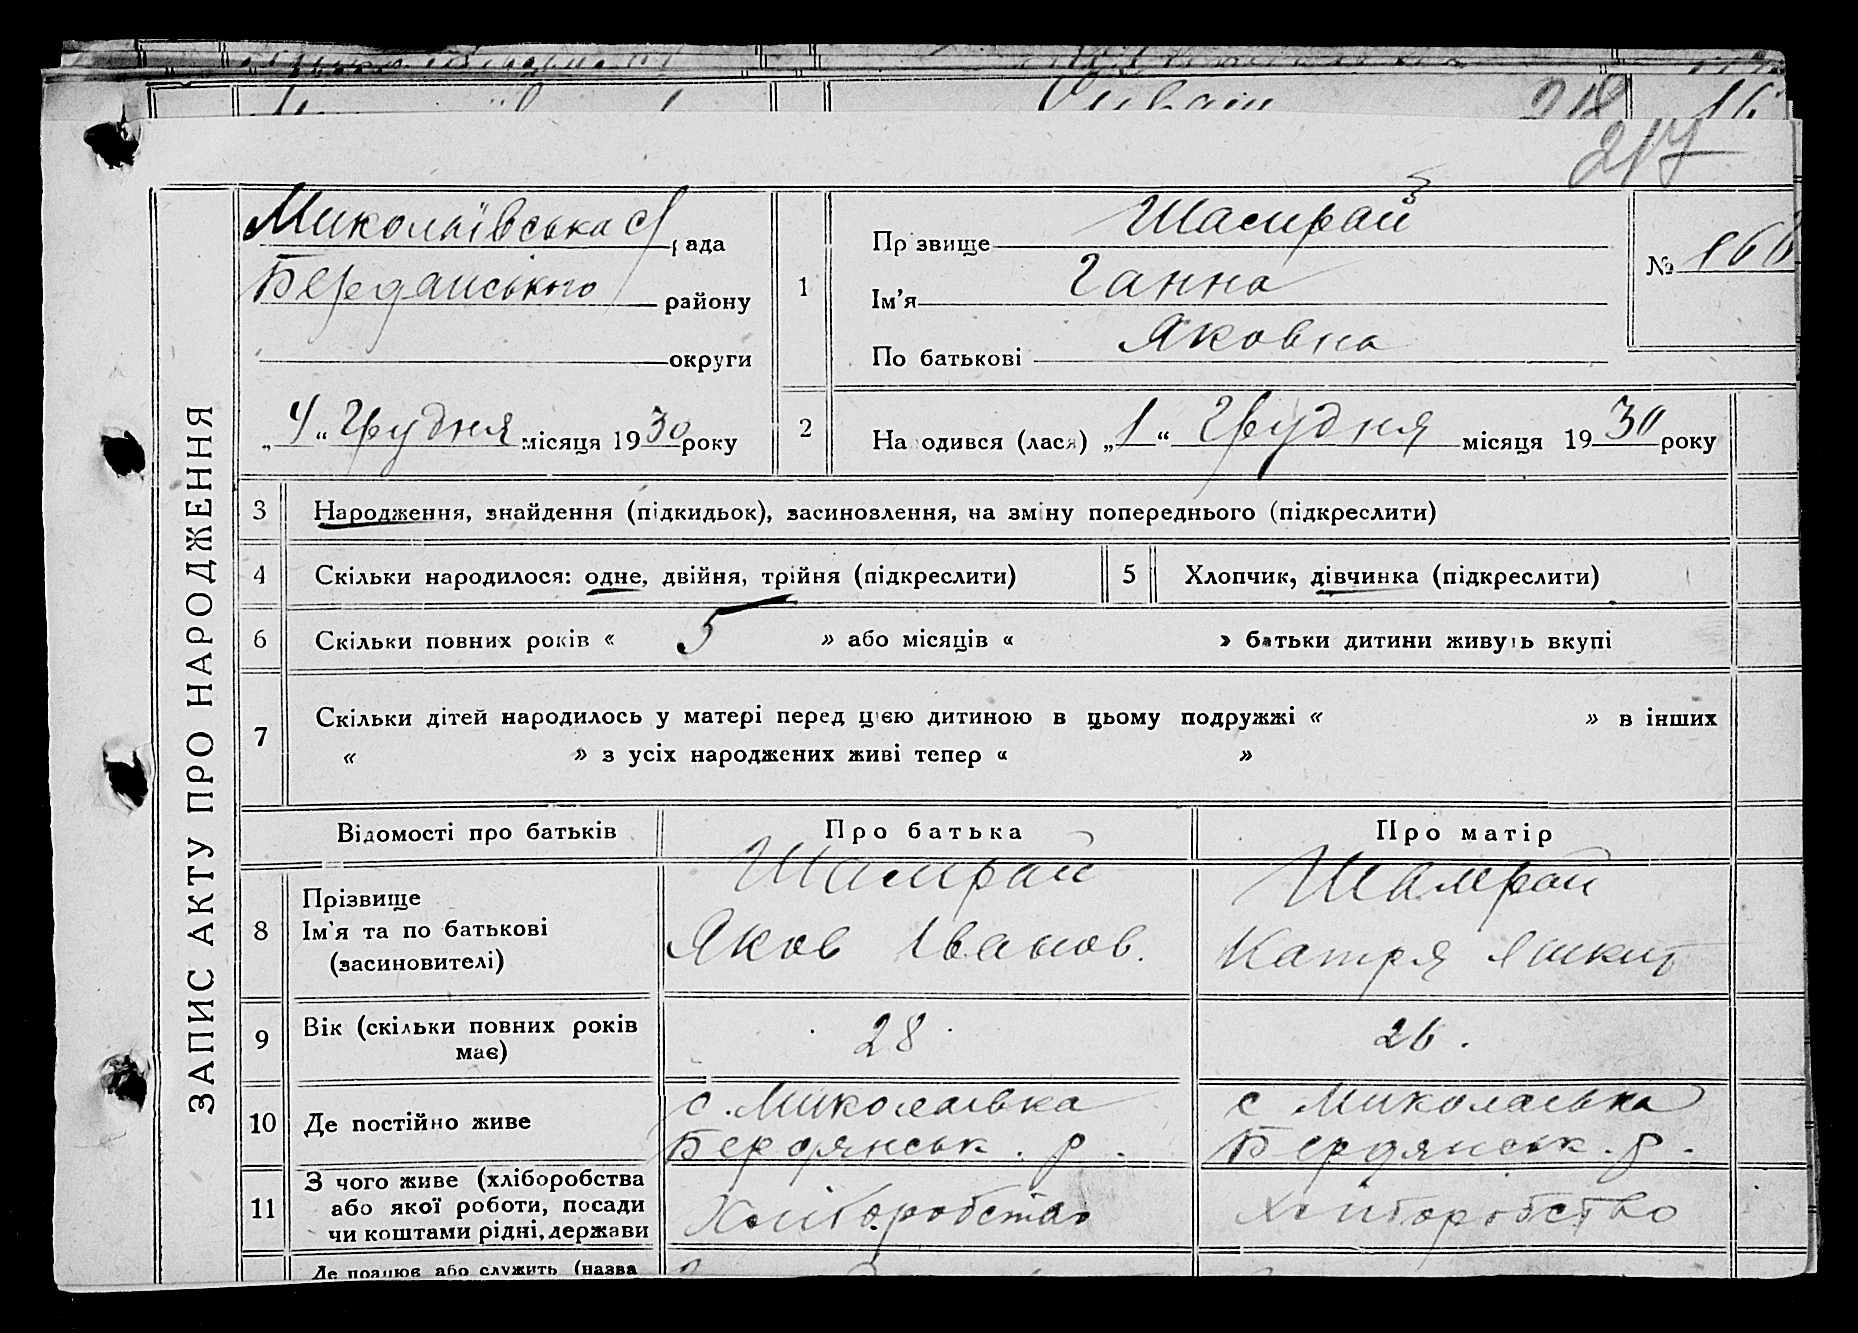 218 16
217
ЗАПИС АКТУ ПРО НАРОДЖЕННЯ
Миколаївська с/рада
Бердянського району
округи
„4“ Грудня місяця 1930 року
1
Прізвище Шамрай
Ім'я Ганна
По батькові Яковна
№ 166
2
Народився (лася) „1“ Грудня місяця 1930 року
3 Народження, знайдення (підкидьок), засиновлення, на зміну попереднього (підкреслити)
4 Скільки народилося: одне, двійня, трійня (підкреслити) 5 Хлопчик, дівчинка (підкреслити)
6 Скільки повних років « 5 » або місяців « » батьки дитини живуть вкупі
7 Скільки дітей народилось у матері перед цією дитиною в цьому подружжі « » в інших
« » з усіх народжених живі тепер « »
Відомості про батьків Про батька Про матір
8 Прізвище Шамрай Шамрай
Ім'я та по батькові Яков Іванов. Катря
(засиновителі)
9 Вік (скільки повних років має) 28 26.
10 Де постійно живе с. Миколаївка с Миколаївка
Бердянськ. р. Бердянськ. р.
11 З чого живе (хліборобства Хліборобство Хліборобство
або якої роботи, посади
чи коштами рідні, держави
Де працює або служить (назва